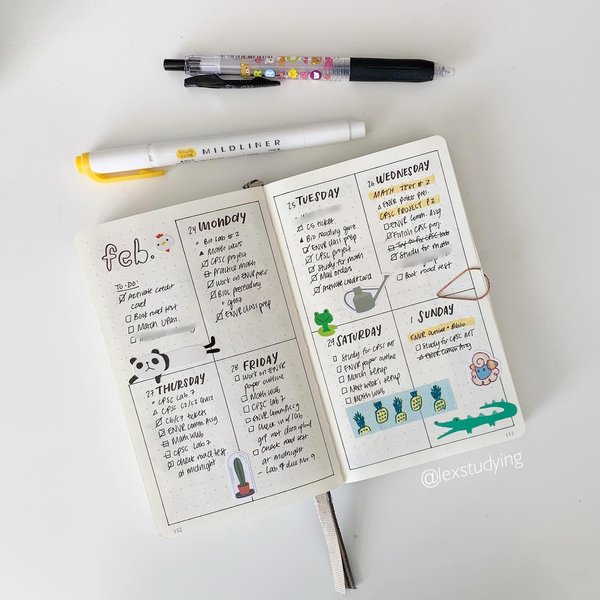 MILDLINER
feb.
TO-DO:
Activate credit
card
Book road test
March
24 MONDAY
Bio Lab # 2
Math WW5
CPSC project
Practice math
Work on ENVR
BIOL prereading
+ quiz
ENVR class prep
25 TUESDAY
CS ticket
Bio reading quiz
ENVR class prep
CPSC project
Study for math
Mail orders
Activate credit card
26 WEDNESDAY
MATH TEST # 2
ENVR paper prep.
CPSC PROJECT P2
ENVR Comm. Asg
Finish CPSC proj
Study for math
Book road test
27 THURSDAY
CPSC Lab 7
CPSC C6/C7 Quiz
C6/C9 tickets
ENVR Comm Asg
Math WW6
CPSC Lab 7
Check road test
at midnight
28 FRIDAY
Work on ENVR
paper outline
Math WW6
CPSC Lab 7
ENVR Comm Asg
Check w/ lab
Check road test
at midnight
29 SATURDAY
Study for CPSC MT
ENVR paper outline
March setup
Next week's setup
Math WW6
1 SUNDAY
ENVR outline + Biblio.
Study for CPSC MT
ENVR Comm Asg
152
153
@lexstudying